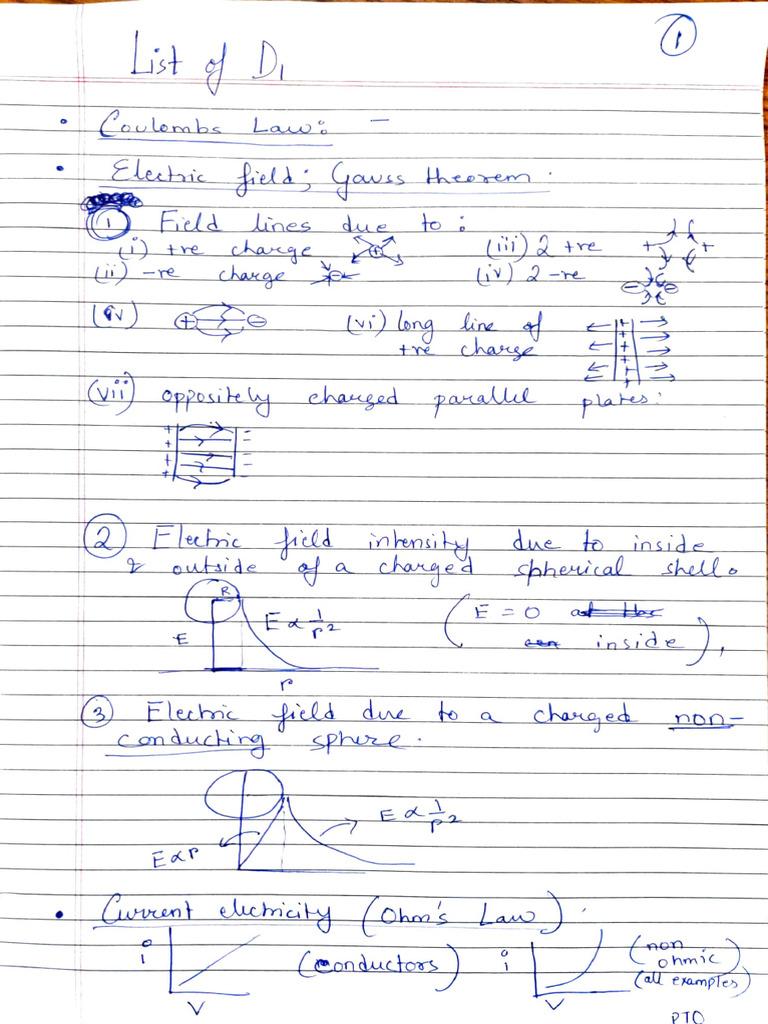 1
List of D1
• Coulombs Law: –
• Electric field; Gauss theorem.
1 Field lines due to :
(i) +re charge + (iii) 2 +re + +
(ii) -re charge - (iv) 2 -re - -
(iv) + - (vi) long line of
+re charge + + + + + +
(vii) oppositely charged parallel plates:
+ + + + - - - -
2 Electric field intensity due to inside
& outside of a charged spherical shell.
R
E E ∝ 1/r2 (E = 0
inside),
r
3 Electric field due to a charged non-
conducting sphere.
E ∝ 1/r2
E ∝ r
• Current electricity (Ohm's Law) :
i (conductors) i (non
ohmic)
(all examples)
V V
PTO